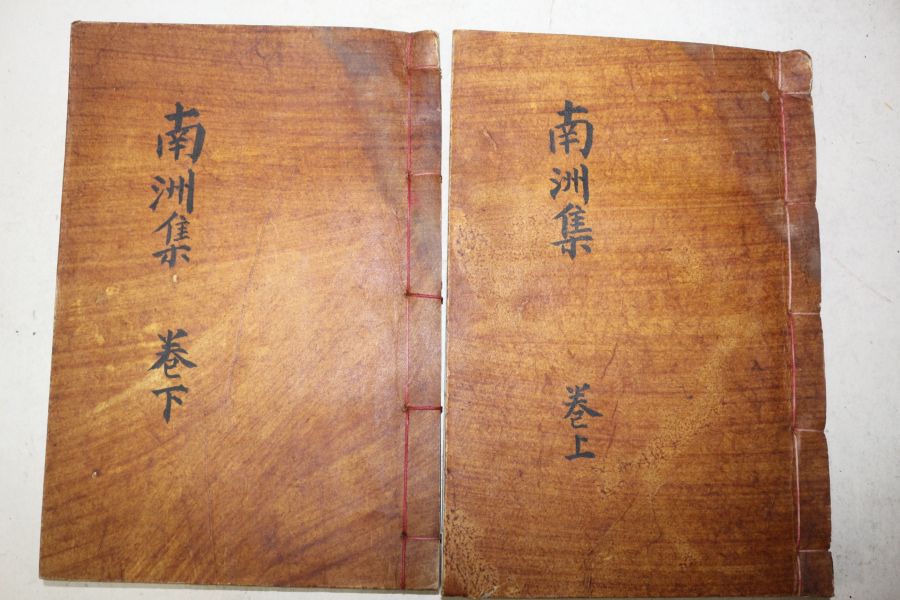 南洲集 卷上
南洲集 卷下